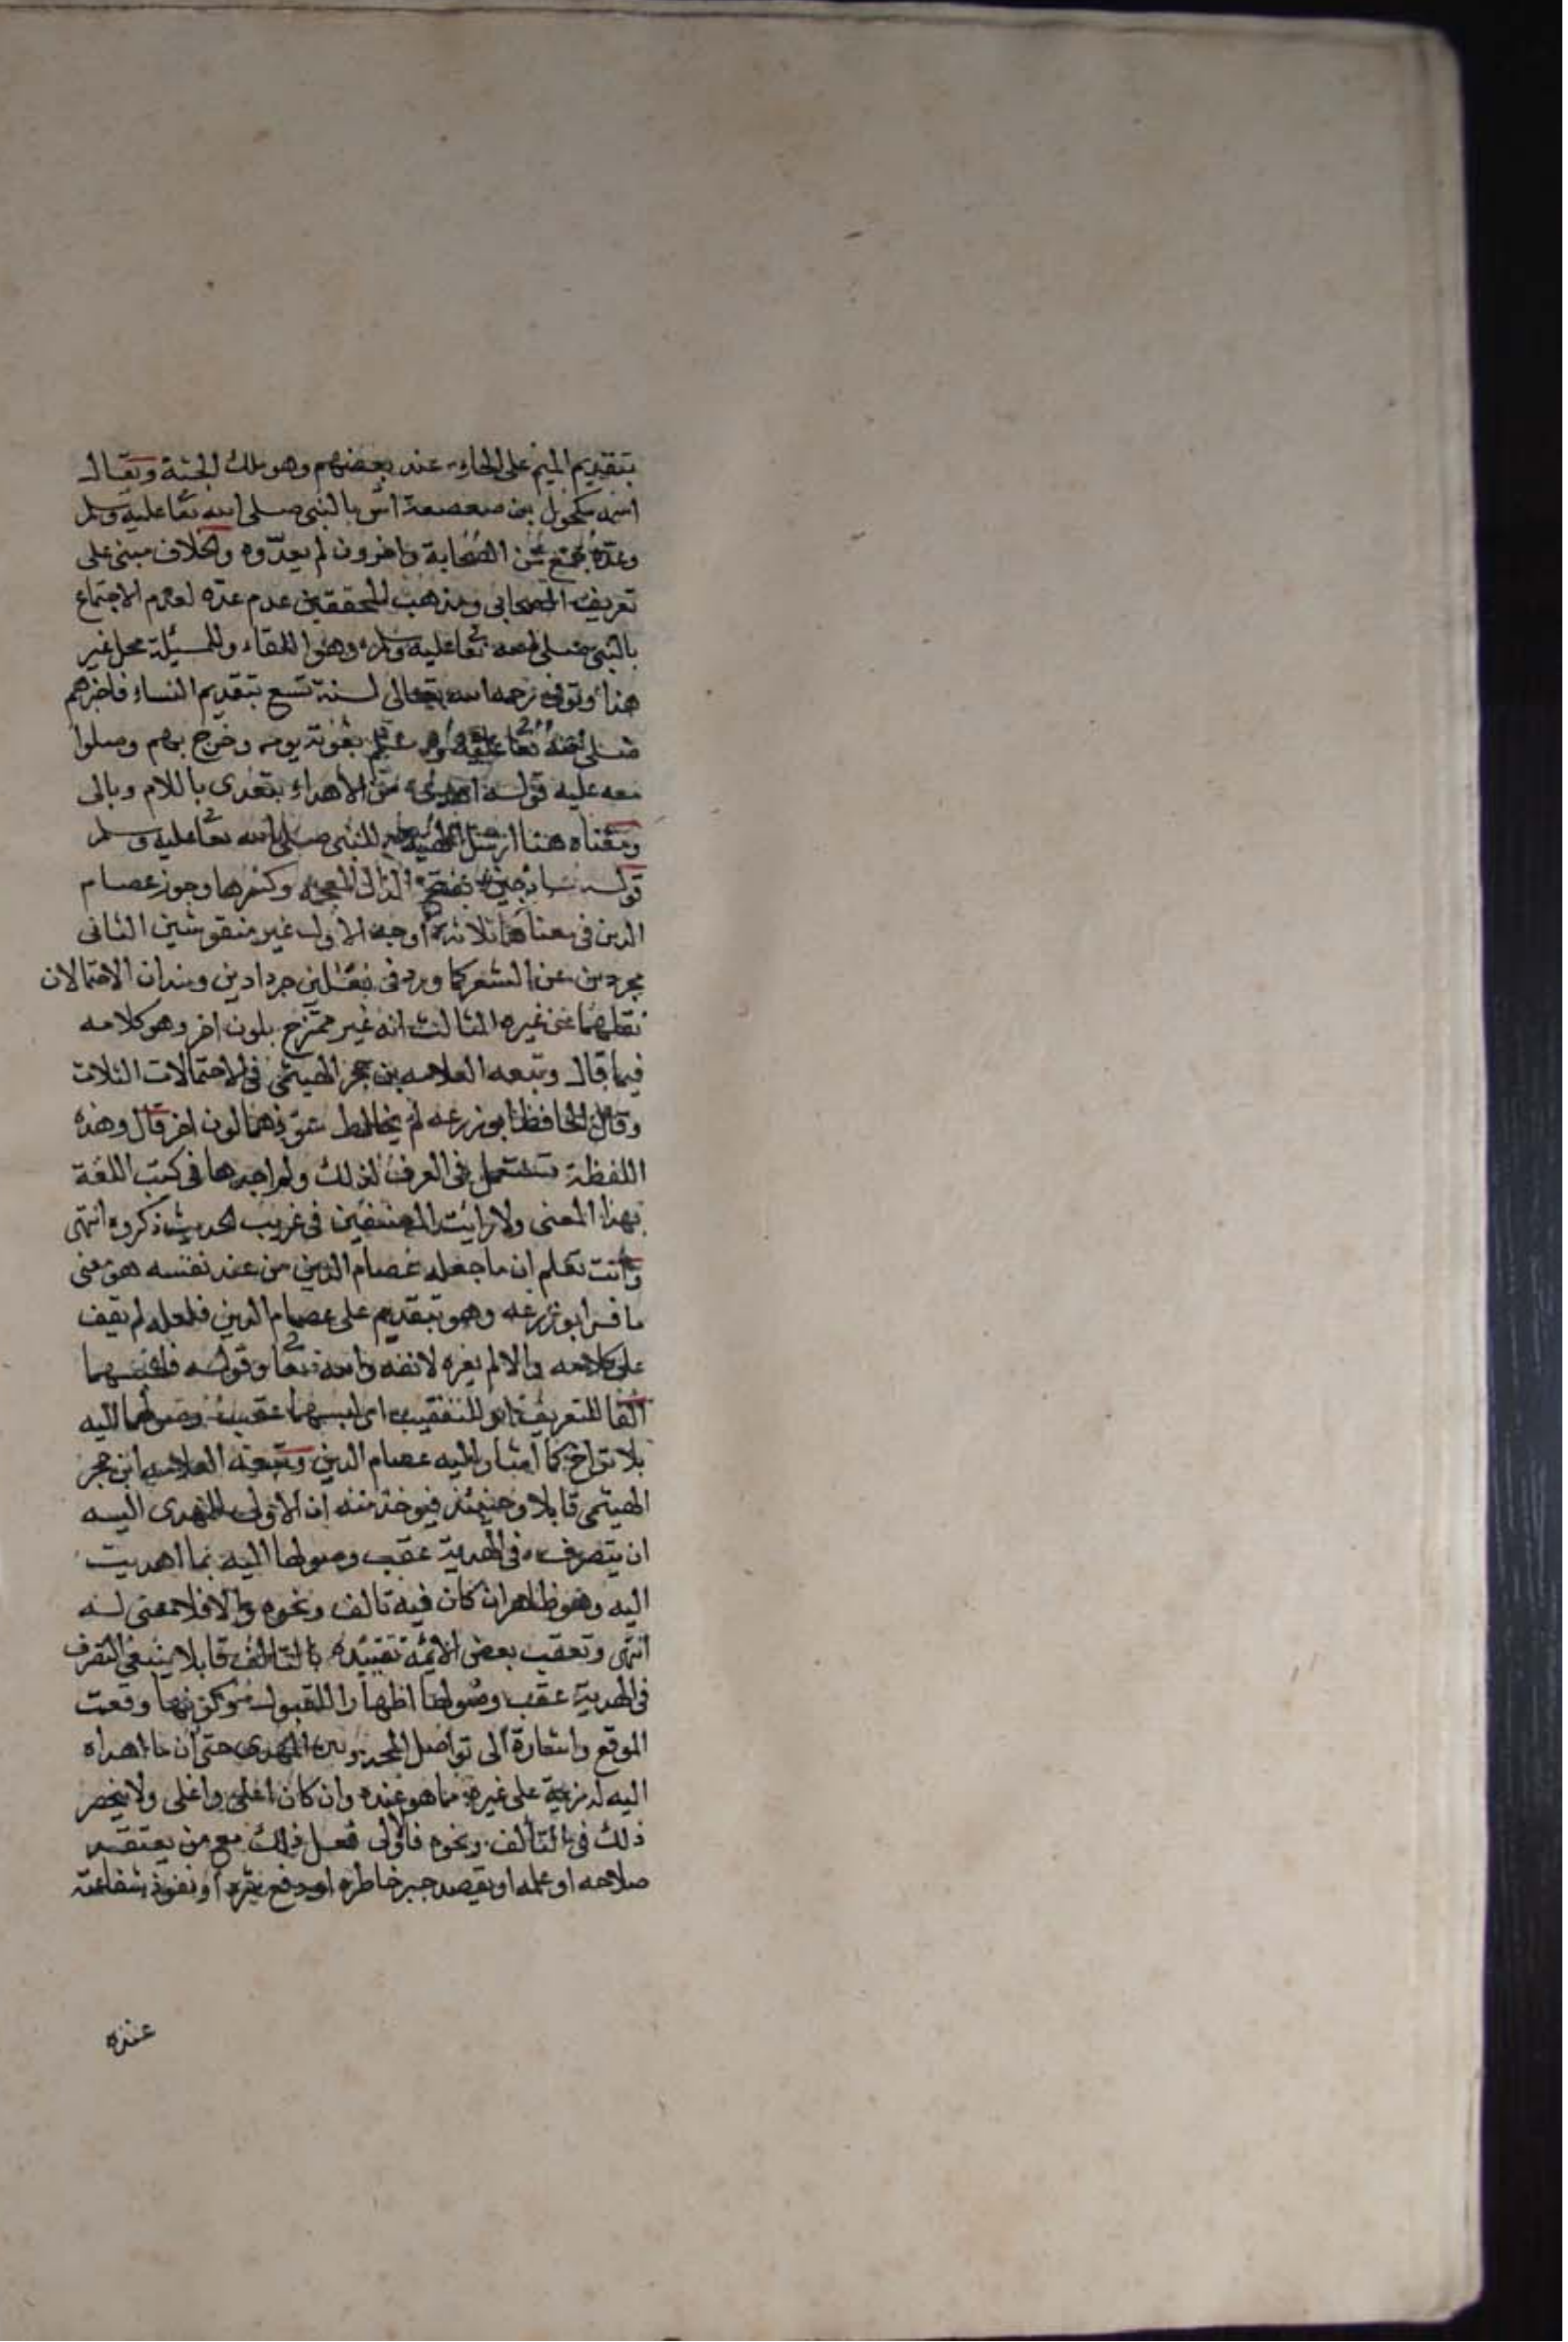 بتقديم الميم على الحاء عند بعضهم وهو ملك الحبشة ويقال
اسمه مكحول بن صعصعة امن بالنبي صلى الله تعا عليه وسلم
وعده جمع من الصحابة واخرون لم يعدوه والخلاف مبني على
تعريف الصحابي ومذهب المحققين عدم عده لعدم الاجتماع
بالنبي صلى الله تعا عليه وسلم وهو اللقاء وللمسيلة محل غير
هذا وتوفي رحمه الله تعالى لسنة تسع بتقديم التاء فاخبرهم
صلى الله تعا عليه وسلم بموته يومه وخرج بهم وصلوا
معه عليه قوله اهدى من الاهداء يتعدى باللام وبالى
ومعناه هنا ارسل الهدية للنبي صلى الله تعا عليه وسلم
قوله ساذجين بفتح الذال المعجمه وكسرها وجوز عصام
الدين في معناهما ثلاثة اوجه الاول غير منقوشين الثاني
مجردين عن الشعر كما ورد في نعلين جرداوين وهذان الاحتمالان
نقلهما عن غيره الثالث انه غير ممتزج بلون اخر وهو كلامه
فيما قال وتبعه العلامه بن حجر الهيتمي في الاحتمالات الثلاث
وقال الحافظ ابو زرعه لم يخالط سوادهما لون اخر قال وهذه
اللفظة تستعمل في العرف لذلك ولم اجدها في كتب اللغة
بهذا المعنى ولا رايت المصنفين في غريب الحديث ذكروه انتهى
وانت تعلم ان ما جعله عصام الدين من عند نفسه هو معنى
ما فسر ابو زرعه وهو متقدم على عصام الدين فلعله لم يقف
على كلامه والا لم يعزه لانفه والله تعا وقوله فلبسهما
الفا للتعريف او للتعقيب اي لبسهما عقب وصولهما اليه
بلا تراخ كما اشار اليه عصام الدين وتبعه العلامه ابن حجر
الهيتمي قايلا وحينئذ فيوخذ منه ان الاولى للمهدى اليه
ان يتصرف في الهدية عقب وصولها اليه بما اهديت
اليه وهو ظاهر ان كان فيه تالف ونحوه والا فلا معنى له
انتهى وتعقب بعض الائمة تقييده بالتالف قايلا ينبغي التصرف
في الهدية عقب وصولها اظهارا للقبول وكونها وقعت
الموقع واشارة الى تواصل المحبة بين المهدي حتى ان ما اهداه
اليه له مزية على غيره مما هو عنده وان كان اعلى واغلى ولا ينحصر
ذلك في التالف ونحوه فالاولى فعل ذلك مع من يعتقد
صلاحه او علمه او يقصد جبر خاطره او دفع شره او نفوذ شفاعته
عنده